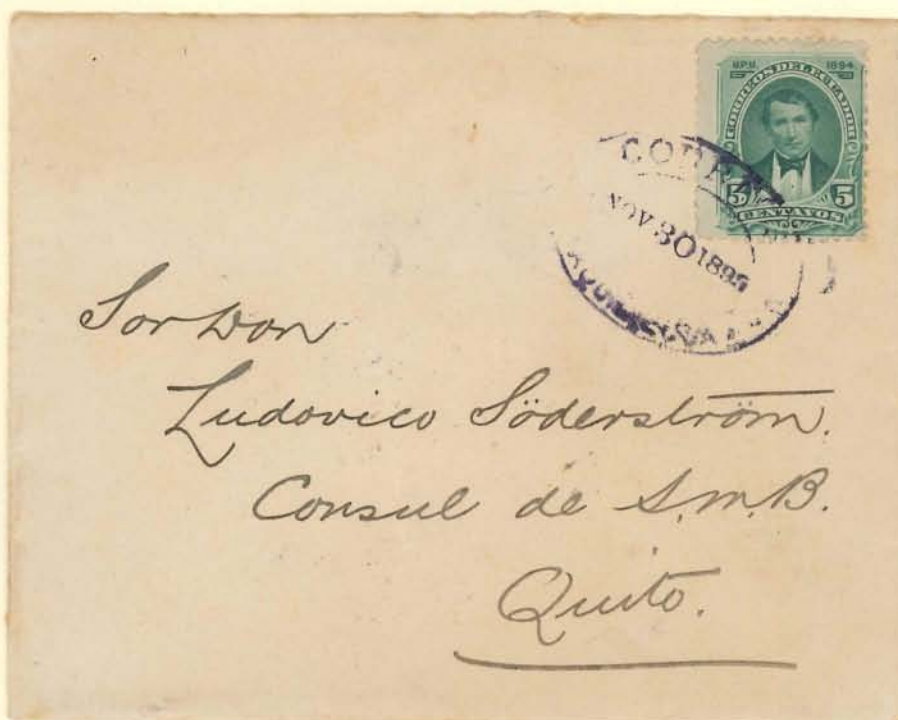 U.P.U. 1894
CORREOS DEL ECUADOR
5 5
CENTAVOS
NOV 30
Sor Don
Ludovico Söderström.
Consul de S.M.B.
Quito.